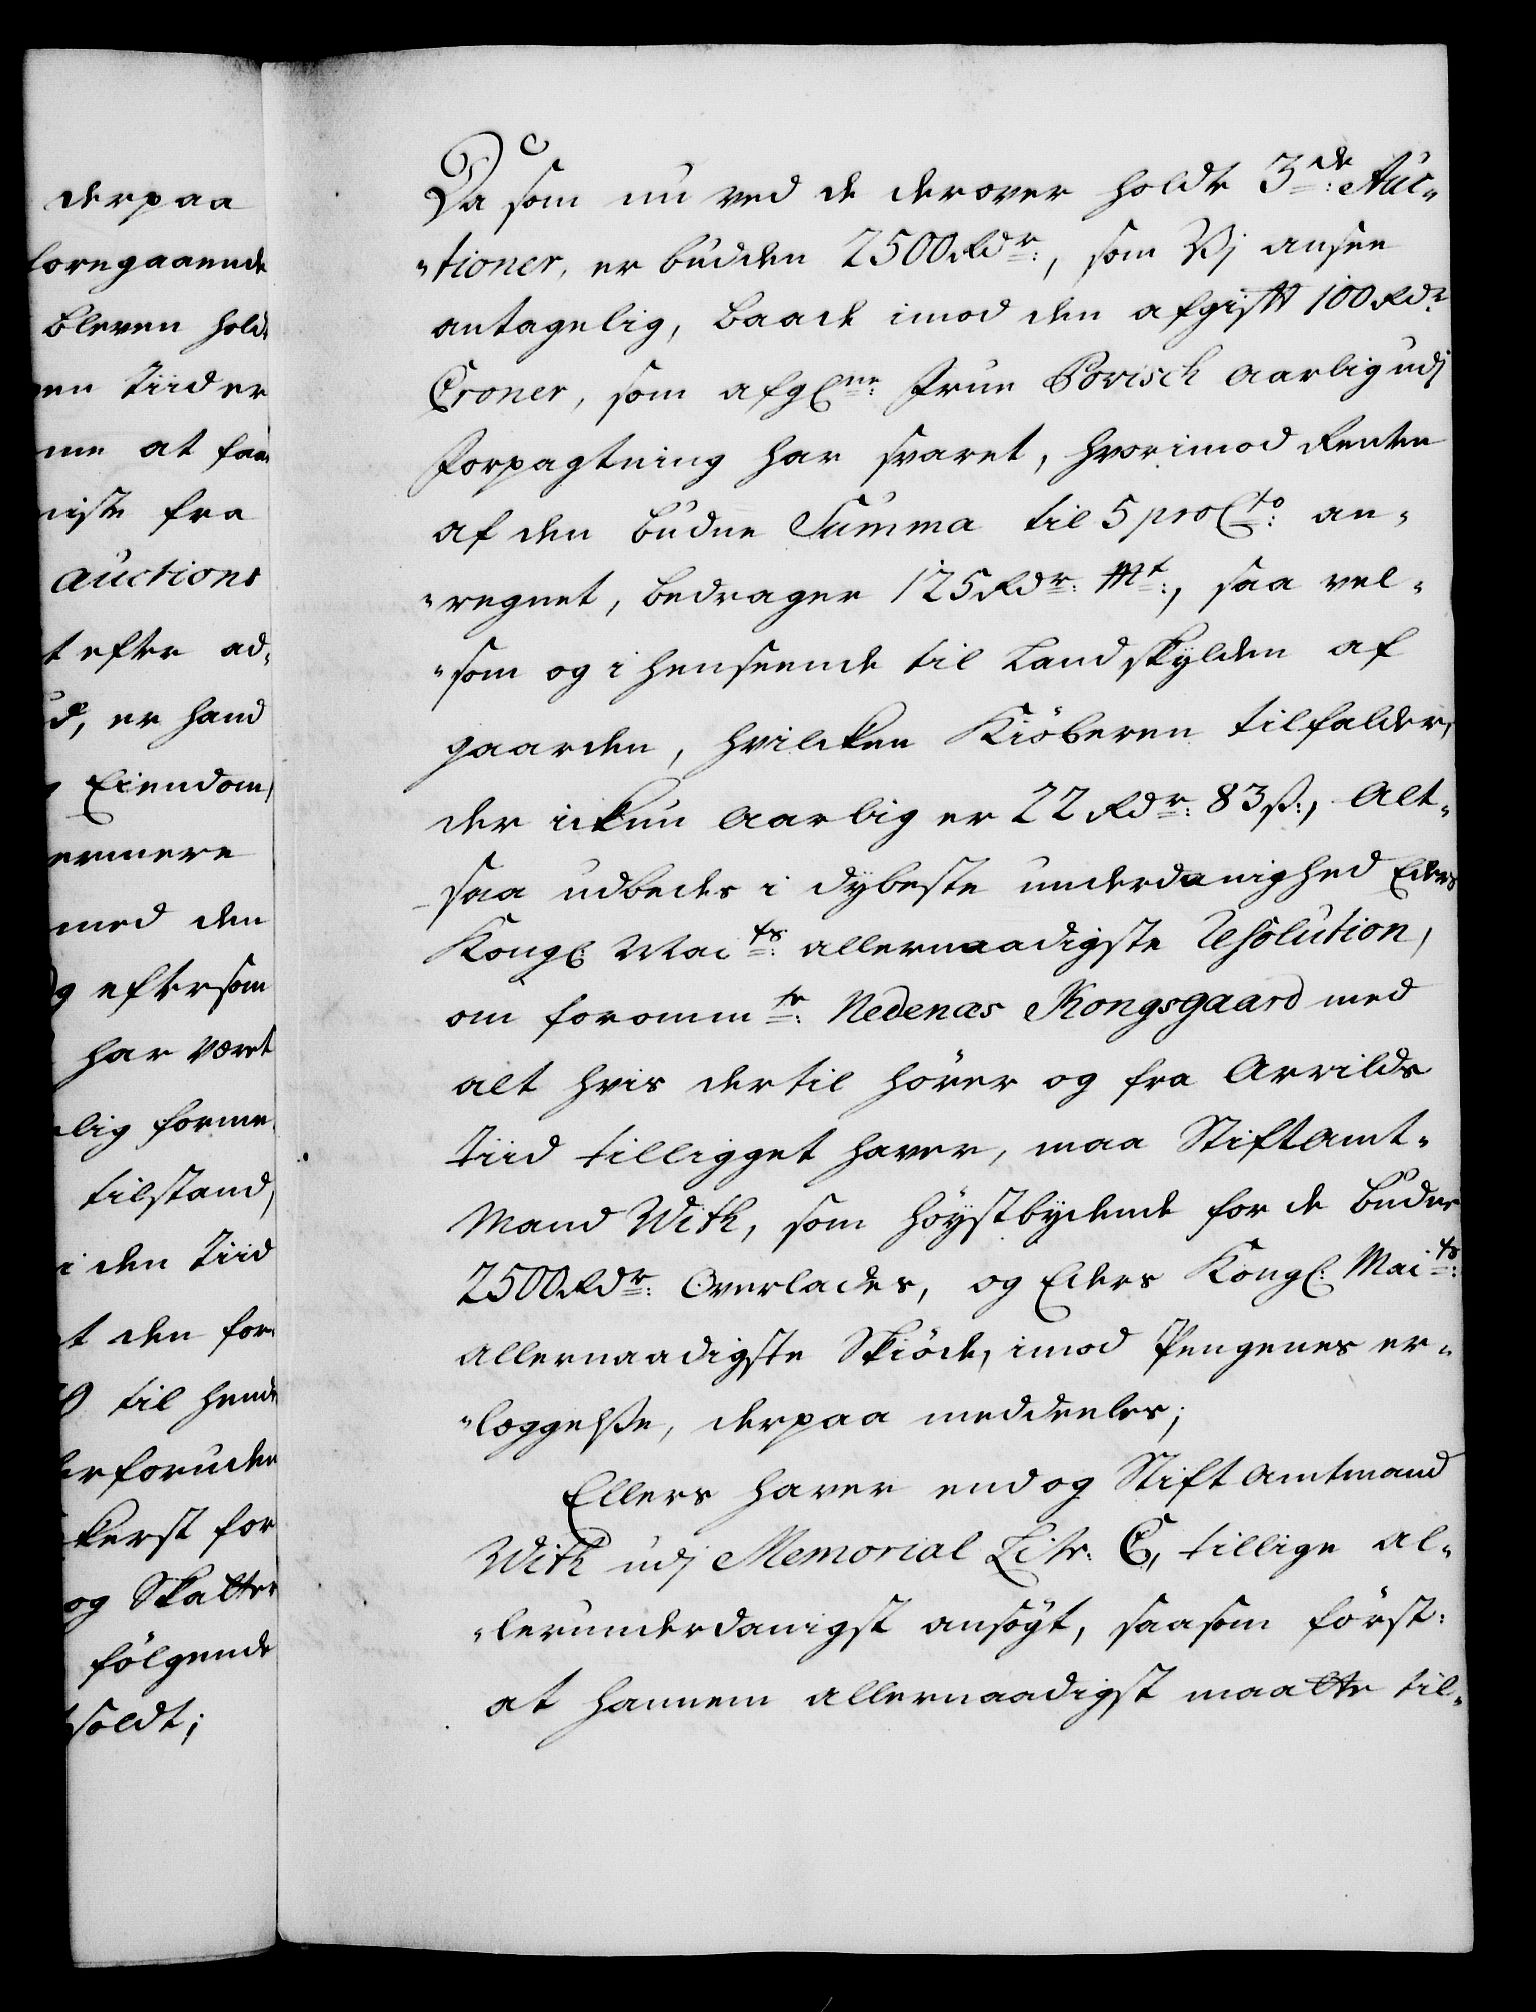 derpaa
foregaaende
bleven hold
en Tiider
me at faa
iste fra
auctions
t efter ad„
d, er hand
Eiendom,
ermere
med den
og eftersom
har været
lig forme
tilstand,
i den Tiid
t den for
til hende
erforuden
kerst for
og Skatter
følgende
soldt;
Da som nu ved de derover holdte 3de: Auc„
„tioner, er budden 2500 Rdr:, som Vj ansee
antagelig, baade imod den afgifft 100 Rdr
Croner, som afgne: Frue Povisch aarlig udj
Forpagtning har svaret, hvorimod Renten
af den budne Summa til 5 pro Cto: an„
„regnet, bedrager 125 Rdr: Mt:, saa vel„
„som og i henseende til Landskylden af
gaarden, hvilcken Kiöberen tilfalder,
der ickun aarlig er 22 Rdr: 83 ß:, Alt„
saa udbedes i dybeste underdanighed Eders
Kongl: Maits: allernaadigste Resolution,
om foromm te: Nedenæs Kongsgaard med
alt hvis dertil hörer og fra Arrilds
Tiid tilligget haver, maa Stiftamt„
Mand With, som höystbydende for de budne
2500 Rdr: Overlades, og Eders Kongl: Maits:
allernaadigste Skiöde, imod Pengenes er„
„læggelße, derpaa meddeeles;
Ellers haver endog Stiftamtmand
With udj Memorial Litr: C, tillige al„
„lerunderdanigst ansögt, saasom först:
at hannem allernaadigst maatte til„